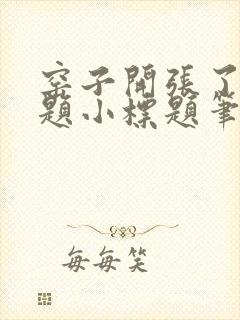 窑子開張了
題小標題筆
每每笑